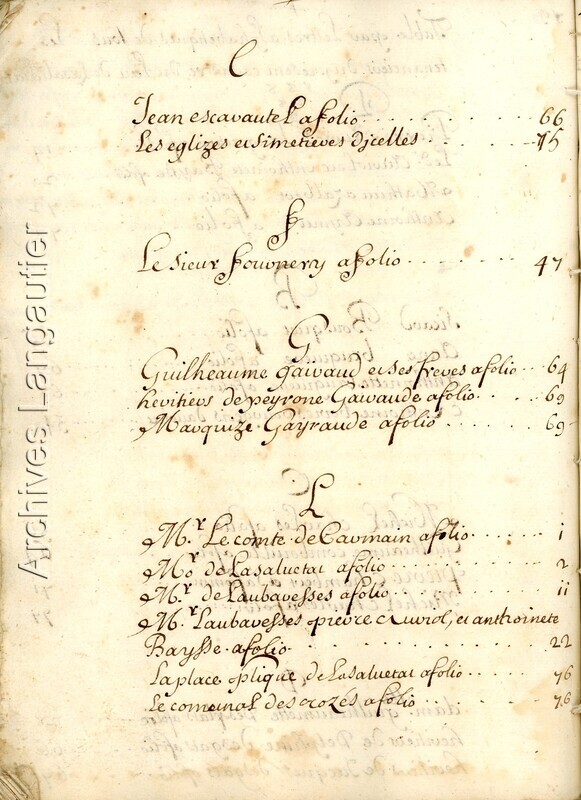 E
Jean escavautel afolio 66
Les eglizes et simetieres d'jcelles 75
F
Le sieur fournery afolio 47
G
Guilheaume gairaud et ses freres afolio 64
heritiers de peyrone Gairaude afolio 69
Marquize Gayraude afolio 69
L
Mr. Le comte de Carmain afolio 1
Mr de Lasaluetat afolio 2
Mr. de Laubaresses afolio 11
Mr. Laubaresses pierre auriol, et anthoinete
Baysse afolio 22
La place plique de Lasaluetat afolio 76
Le comunal des crozés afolio 76
Archives Langautier